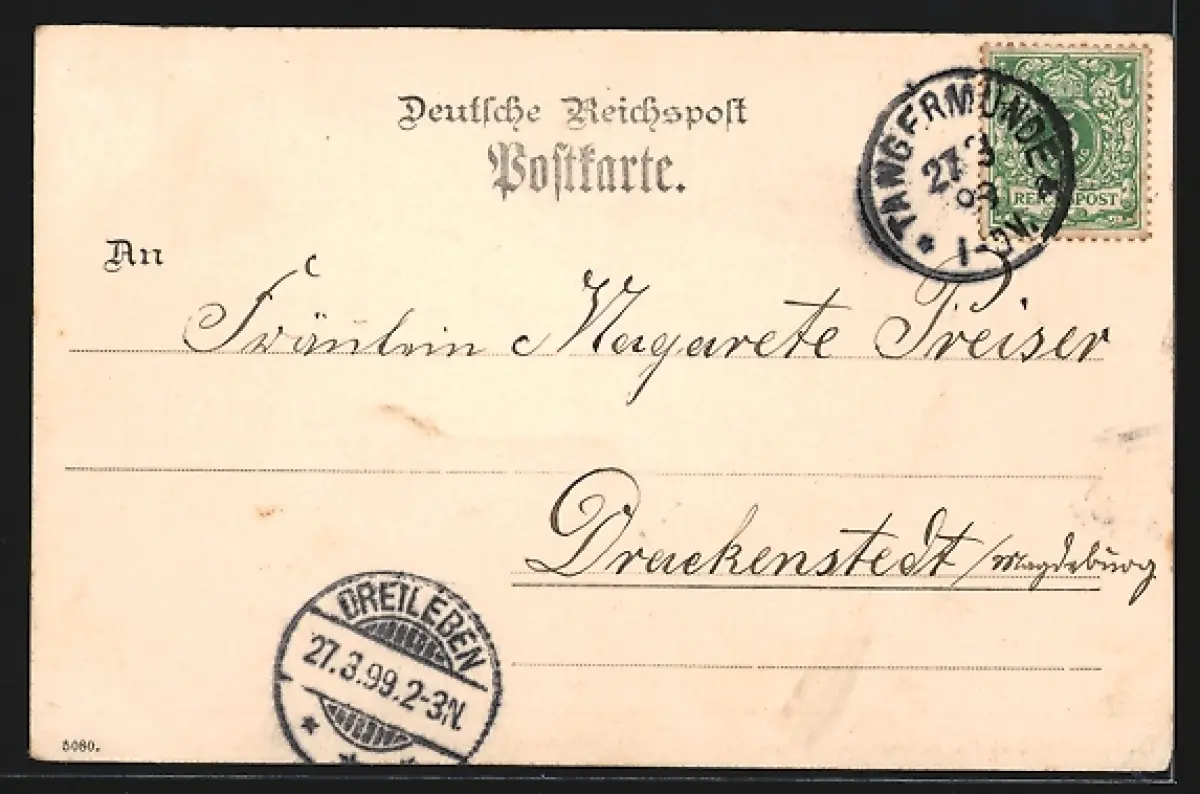 Deutsche Reichspost
Postkarte.
TANGERMÜNDE
27 3
99
REICHSPOST
An
Fräulein Magarete Preiser
Drackenstedt / Magdeburg
DREILEBEN
27.3.99.2-3N.
5080.